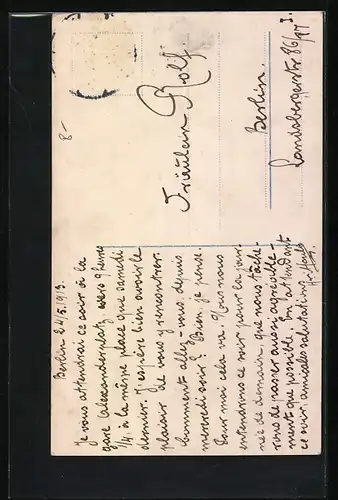 Berlin 24/5.1913.
Je vous attendrai ce soir à la
gare Alexanderplatz, vers 9 heures
1/4 à la même place que samedi
dernier. J'espère bien avoir le
plaisir de vous y rencontrer.
Comment allez-vous depuis
mercredi soir? Bien, je pense.
Pour moi cela va. Nous nous
entendrons ce soir pour la jour-
née de demain, que nous tâche-
rons de passer aussi agréable-
ment que possible. En attendant
ce soir, amicales salutations.
Fräulein Rolf.
Berlin.
Landsbergerstr 86/87 I.
8-